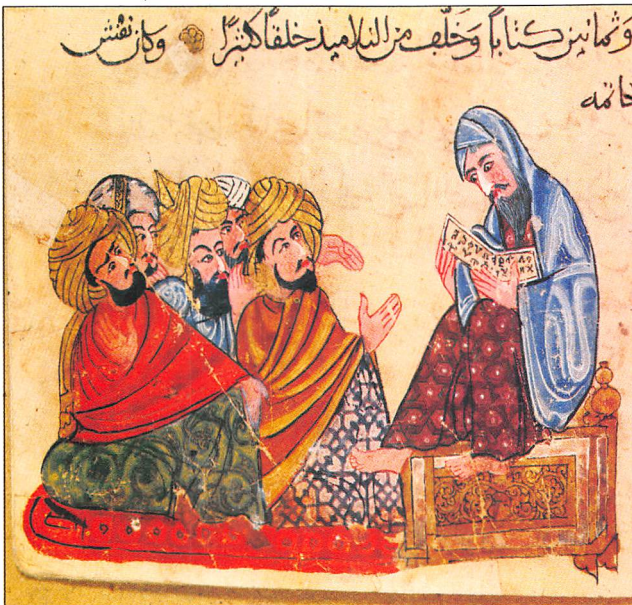 وثمانين كتاباً وخلّف من التلاميذ خلقاً كثيراً وكان نقش
خاتمه